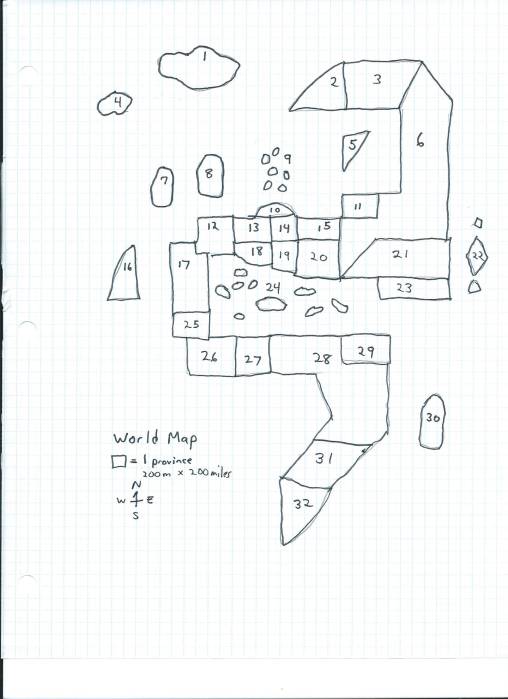 1
2
3
4
5
6
7
8
9
10
11
12
13
14
15
16
17
18
19
20
21
22
23
24
25
26
27
28
29
30
31
32
World Map
= 1 province
200m x 200miles
N
W E
S